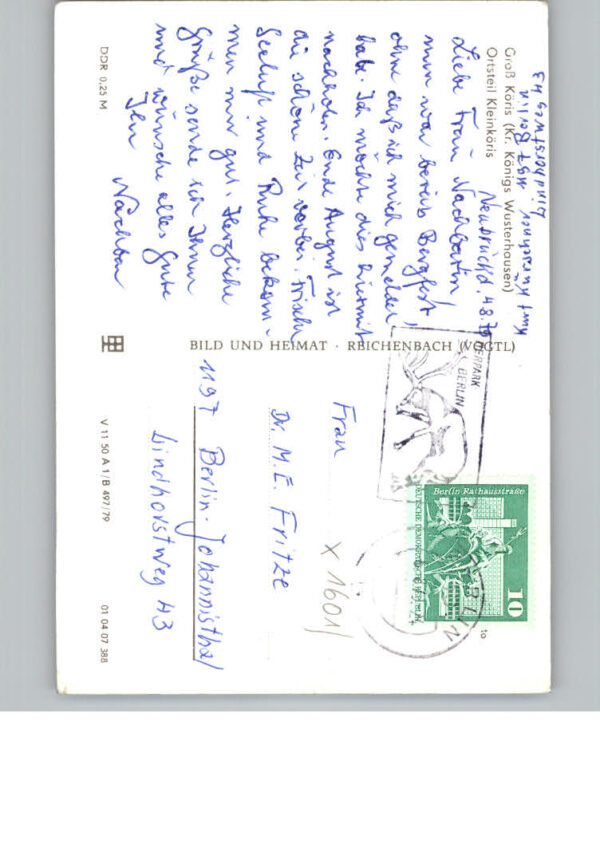 Groß Köris (Kr. Königs Wusterhausen)
Ortsteil Kleinköris
1197 Berlin
Lindhorstweg 43
Neubrück, 4.8.79
Liebe Frau Nachbarin!
nun war bereits Bergfest,
ohne daß ich mich gemeldet
habe. Ich möchte dies hiermit
nachholen. Ende August ist
die schöne Zeit vorbei. Frische
Seeluft und Ruhe bekom-
men mir gut. Herzliche
Grüße sende ich Ihnen
und wünsche alles Gute
Ihr
Nachbar
DDR 0,25 M
BILD UND HEIMAT · REICHENBACH (VOGTL)
TIERPARK
BERLIN
Berlin Rathausstraße
10
DEUTSCHE DEMOKRATISCHE REPUBLIK
BERLIN
to
Frau
x 1601/
Dr. M. E. Fritze
1197 Berlin-Johannisthal
Lindhorstweg 43
V 11 50 A 1/B 497/79
01 04 07 388